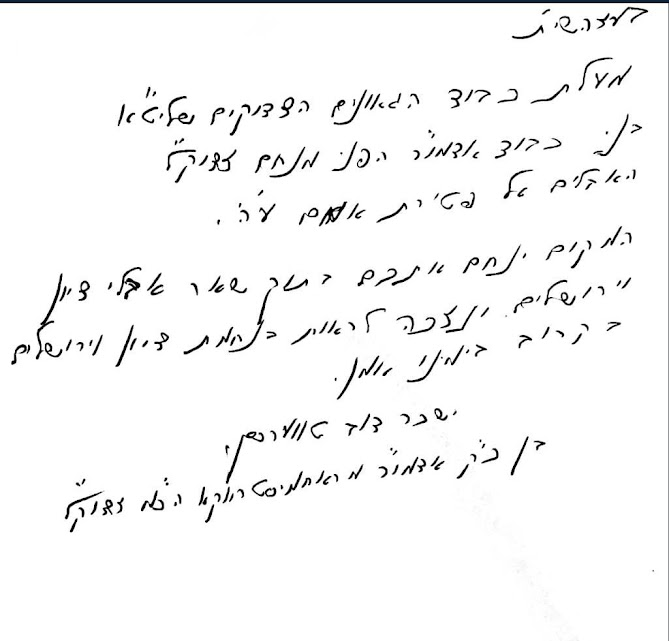 בעזהשי"ת
מעלת כבוד הגאונים הצדיקים שליט"א
בני כבוד אדמו"ר הפני מנחם זצוק"ל
האבלים על פטירת אמם ע"ה.
המקום ינחם אתכם בתוך שאר אבלי ציון
וירושלים ונזכה לראות בנחמת ציון וירושלים
בקרוב בימינו אמן.
ישכר דוב טווערסקי.
בן כ"ק אדמו"ר מראחמיסטריווקא הכ"מ זצוק"ל